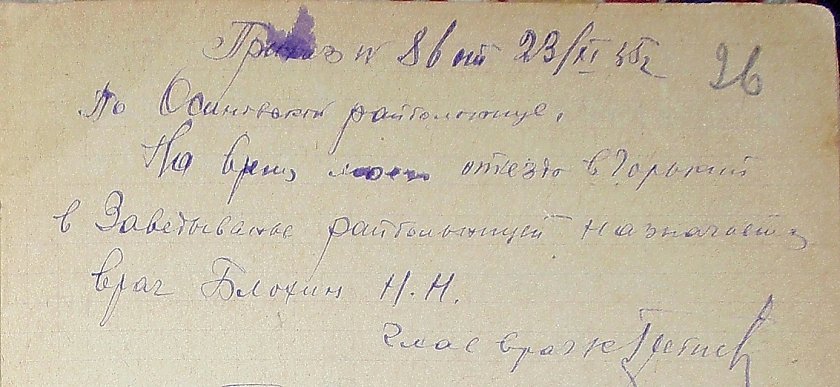 Приказ N 86 от 23/XI 35г
26
По Осиновской райбольнице.
На время моего отъезда в Горький
в Заведывание райбольницей назначается
врач Блохин Н.Н.
Глав врач